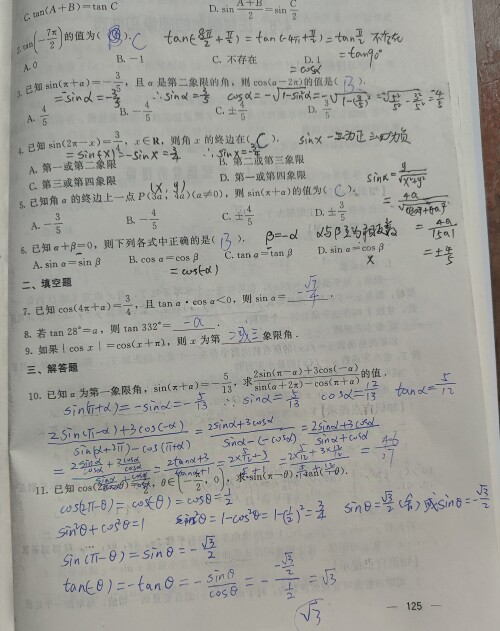 C. tan(A+B)=tan C D. sin (A+B)/2=sin C/2
2. tan(-7π/2)的值为( ). C tan(8π/2+π/2)=tan(-4π+π/2)=tanπ/2 不存在
A. 0 B. -1 C. 不存在 D. 1 =tan90°
3. 已知 sin(π+α)=-3/5, 且α是第二象限的角, 则 cos(α-2π)的值是( B ). =cosα
=-sinα=-3/5 ∴sinα=3/5 cosα=-√(1-sin²α)
A. 4/5 B. -4/5 C. ±4/5 D. 3/5
4. 已知 sin(2π-x)=3/4, x∈R, 则角 x 的终边在( C ).
=sin(-x)=-sinx=3/4 ∴sinx=-3/4
A. 第一或第二象限 B. 第二或第三象限
C. 第三或第四象限 D. 第一或第四象限
(x, y)
5. 已知角α的终边上一点 P(3a, 4a)(a≠0), 则 sin(π+α)的值为( C ).
A. -3/5 B. -4/5 C. ±4/5 D. ±3/5
sinα=y/√(x²+y²)
=±4/5
6. 已知α+β=0, 则下列各式中正确的是( B ). β=-α
A. sin α=sin β B. cos α=cos β C. tan α=tan β D. sin α=cos β
=cos(-α) x
二、填空题
7. 已知 cos(4π+α)=3/4, 且 tan α·cos α<0, 则 sin α= -√7/4 .
8. 若 tan 28°=a, 则 tan 332°= -a .
9. 如果|cos x|=cos(x+π), 则 x 为第 二或三 象限角.
三、解答题
10. 已知α为第一象限角, sin(π+α)=-5/13, 求 (2sin(π-α)+3cos(-α))/(sin(α+2π)-cos(π+α)) 的值.
sin(π+α)=-sinα=-5/13 ∴sinα=5/13 cosα=12/13 tanα=5/12
(2sin(π-α)+3cos(-α))/(sin(α+2π)-cos(π+α))=(2sinα+3cosα)/(sinα-(-cosα))=(2sinα+3cosα)/(sinα+cosα)
=(2tanα+3)/(tanα+1)
=46/17
11. 已知 cos(2π-θ)=1/2, θ∈(-π/2, 0), 求 sin(π-θ), tan(-θ).
cos(2π-θ)=cos(-θ)=cosθ=1/2
sin²θ+cos²θ=1 sin²θ=1-cos²θ=1-(1/2)²=3/4 sinθ=√3/2(舍)或sinθ=-√3/2
sin(π-θ)=sinθ=-√3/2
tan(-θ)=-tanθ=-sinθ/cosθ=-(-√3/2)/(1/2)=√3
√3
— 125 —